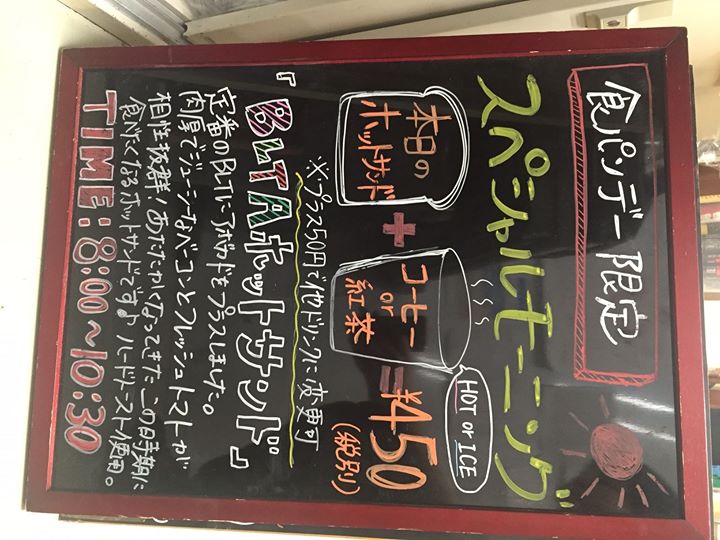 食パンデー限定
スペシャルモーニング
本日の
ホットサンド
+
コーヒー
or
紅茶
HOT or ICE
=¥450
(税別)
※プラス50円で他ドリンクに変更可
『BLTAホットサンド』
定番のBLTにアボカドをプラスしました。
肉厚でジューシーなベーコンとフレッシュトマトが
相性抜群!あたたかくなってきたこの時期に
食べたくなるホットサンドです♪ ハードトースト使用。
TIME:8:00~10:30